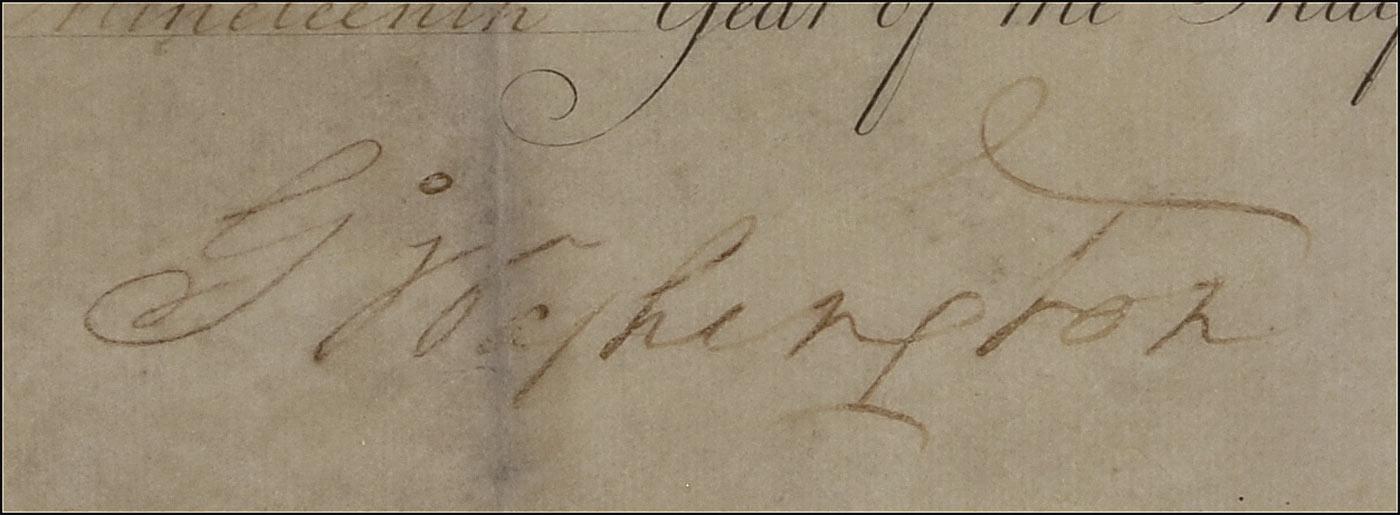 Nineteenth Year of the Inde
Go Washington